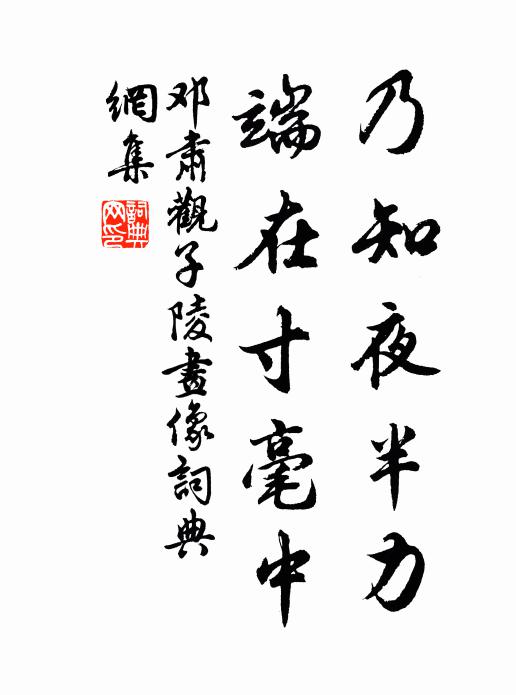 乃知夜半力
端在寸毫中
邓肃觀子陵畫像詞典
網集
詞典
网印